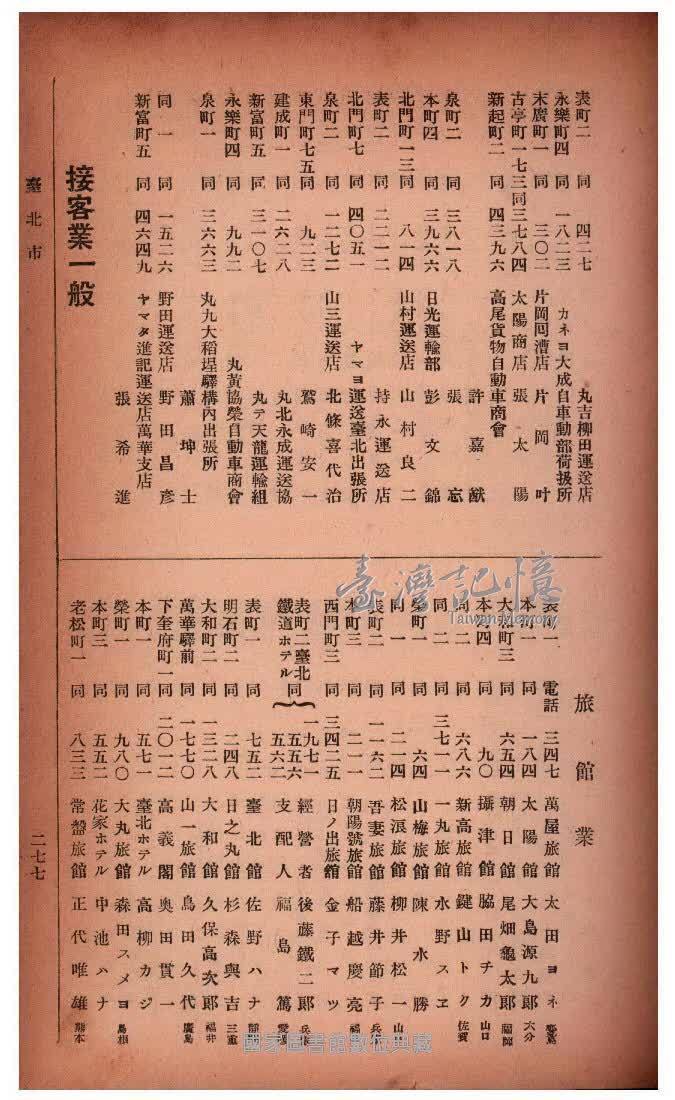 表町二 同 四二七 丸吉柳田運送店
永樂町四 同 一八二三 カネヨ大成自動車部荷扱所
末廣町一 同 三〇二 片岡囘漕店 片岡叶
古亭町一七三 同 三七八四 太陽商店 張太陽
新起町二 同 四三九六 高尾貨物自動車商會
許嘉猷
泉町二 同 三八一八 張忘
本町四 同 三九六六 日光運輸部 彭文錦
北門町一三 同 八一四 山村運送店 山村良二
表町二 同 二二一二 持永運送店
北門町七 同 四〇五一 ヤマヨ運送臺北出張所
泉町二 同 一二七二 山三運送店 北條喜代治
東門町七五 同 九二三 鷲崎安一
建成町一 同 二六二八 丸北永成運送協
新富町五 同 三一〇七 丸テ天龍運輸組
永樂町四 同 九九二 丸黃協榮自動車商會
泉町一 同 三六六三 丸九大稻埕驛構內出張所
蕭坤士
同一 同 一五二六 野田運送店 野田昌彥
新富町五 同 四六四九 ヤマタ進記運送店萬華支店
張希進
接客業一般
旅館業
表町一 電話 三四七 萬屋旅館 太田ヨネ
本町一 同 一八四 太陽館 大島源九郎 大分
大和町三 同 六五四 朝日館 尾畑龜太郎 福岡
本町四 同 九〇 攝津館 脇田チカ 山口
同二 同 六八六 新高旅館 鍵山トク 佐賀
同二 同 三七一一 一丸旅館 水野スヱ
榮町一 同 六四 山梅旅館 陳水勝
同一 同 二一四 松濱旅館 柳井松一 山口
表町二 同 一一六二 吾妻旅館 藤井節子 兵庫
本町三 同 二一一 朝陽號旅館 船越慶亮 福岡
西門町三 同 三四二五 日ノ出旅館 金子マツ
表町二臺北鐵道ホテル 同 一九七一 五五六 五六二 經營者 後藤鐵二郎 兵庫
支配人 福島篤 愛媛
表町一 同 七五二 臺北館 佐野ハナ 靜岡
明石町二 同 二四八 日之丸館 杉森與吉 三重
大和町二 同 一三二八 大和館 久保高次郎 福井
萬華驛前 同 一七七〇 山一旅館 島田久代 廣島
下奎府町一 同 二〇一二 高義閣 奧田貫一
本町一 同 五七一 臺北ホテル 高柳カジ
榮町一 同 九八〇 大丸旅館 森田スメヨ 島根
本町三 同 五五二 花家ホテル 中池ハナ
老松町一 同 八三三 常盤旅館 正代唯雄 熊本
臺北市
二七七
臺灣記憶
Taiwan Memory
國家圖書館數位典藏